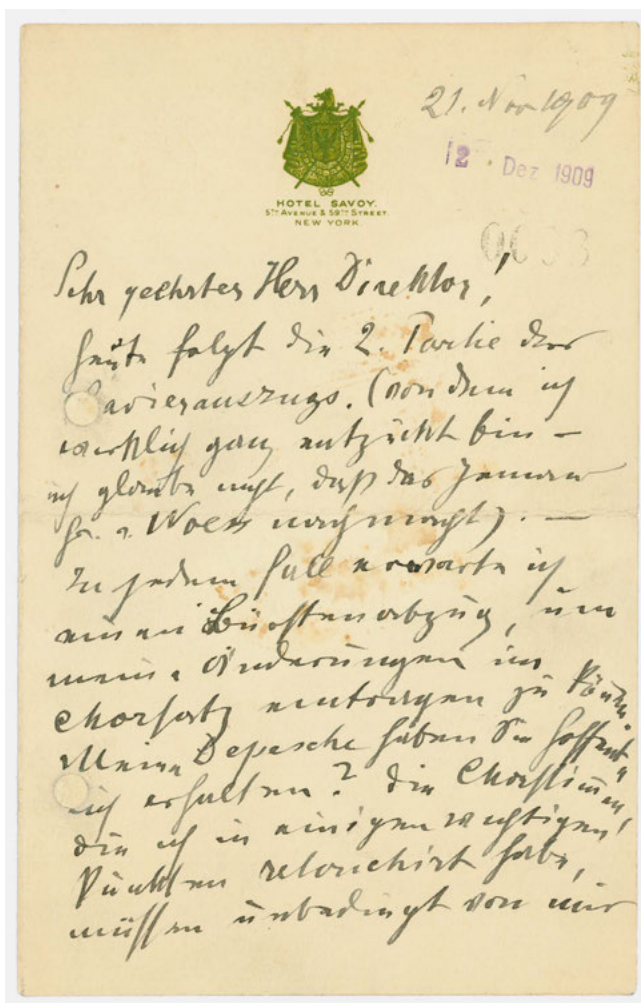 21. Nov 1909
2. Dez 1909
HOTEL SAVOY.
5TH AVENUE & 59TH STREET.
NEW YORK.
Sehr geehrter Herr Direktor!
heute folgt die 2. Partie des
Clavierauszugs. (von dem ich
wirklich ganz entzückt bin –
ich glaube nicht, daß das Jemand
H. v. Woess nachmacht). –
In jedem Fall erwarte ich
einen Bürstenabzug, um
meine Änderungen im
Chorsatz eintragen zu können.
Meine Depesche haben Sie hoffent-
lich erhalten? Die Chorstimmen,
die ich in einigen wichtigen
Punkten retouchirt habe,
müssen unbedingt von mir